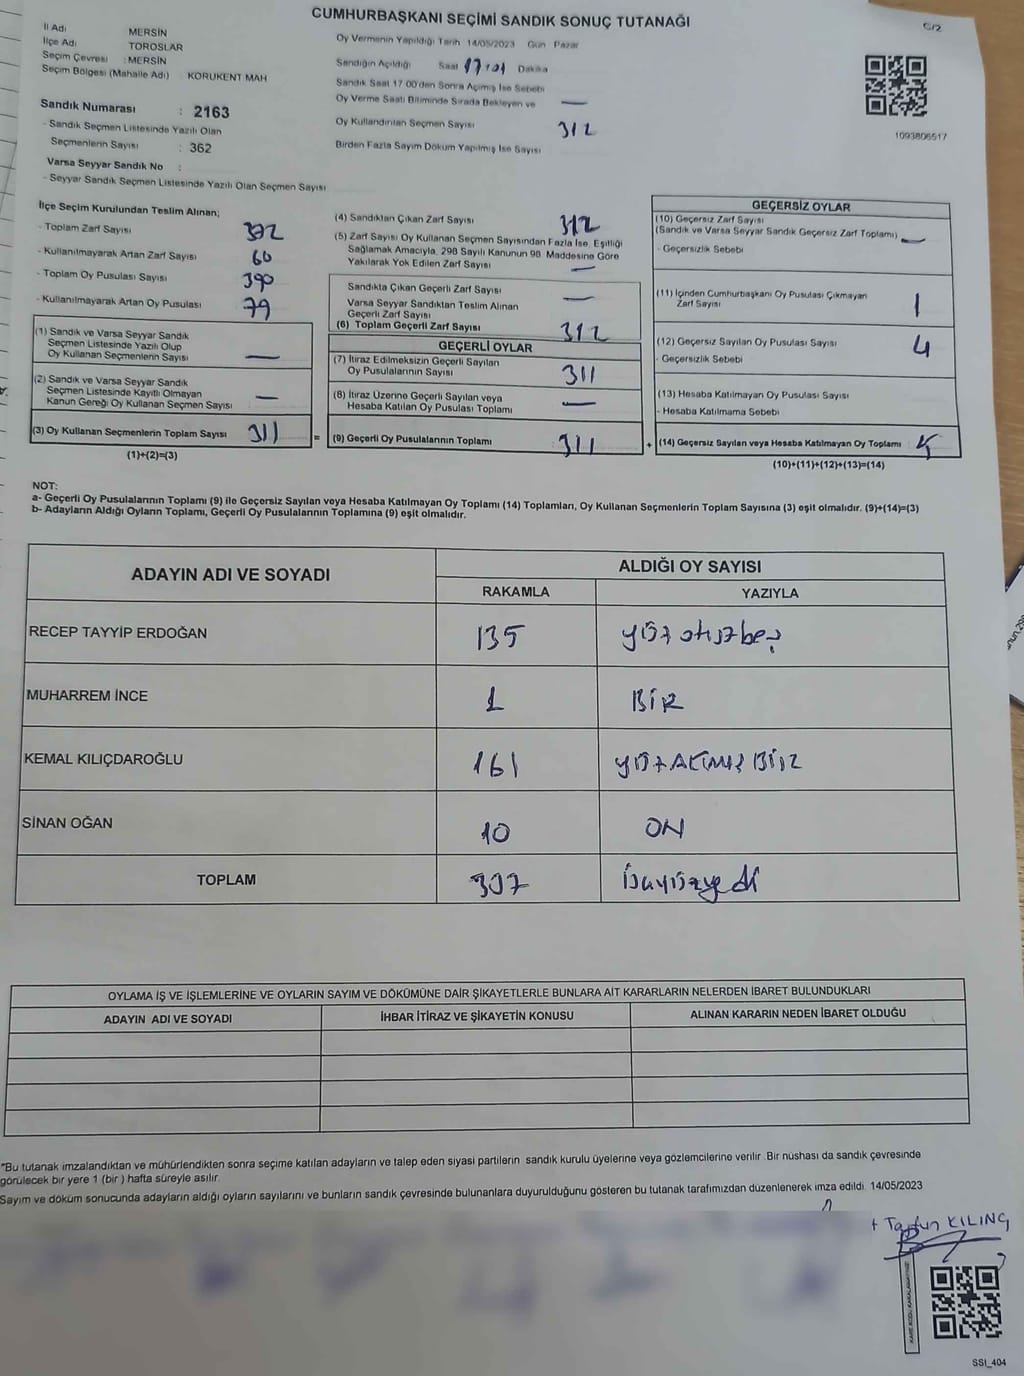 CUMHURBAŞKANI SEÇİMİ SANDIK SONUÇ TUTANAĞI
C/2
İl Adı MERSİN
İlçe Adı TOROSLAR
Seçim Çevresi : MERSİN
Seçim Bölgesi (Mahalle Adı) KORUKENT MAH
Sandık Numarası : 2163
- Sandık Seçmen Listesinde Yazılı Olan
Seçmenlerin Sayısı : 362
Varsa Seyyar Sandık No :
- Seyyar Sandık Seçmen Listesinde Yazılı Olan Seçmen Sayısı
Oy Vermenin Yapıldığı Tarih 14/05/2023 Gün Pazar
Sandığın Açıldığı Saat 17:01 Dakika
Sandık Saat 17.00'den Sonra Açılmış İse Sebebi
Oy Verme Saati Bitiminde Sırada Bekleyen ve —
Oy Kullandırılan Seçmen Sayısı 312
Birden Fazla Sayım Döküm Yapılmış İse Sayısı
1093806517
İlçe Seçim Kurulundan Teslim Alınan;
- Toplam Zarf Sayısı 372
- Kullanılmayarak Artan Zarf Sayısı 60
- Toplam Oy Pusulası Sayısı 390
- Kullanılmayarak Artan Oy Pusulası 79
(1) Sandık ve Varsa Seyyar Sandık
Seçmen Listesinde Yazılı Olup
Oy Kullanan Seçmenlerin Sayısı —
(2) Sandık ve Varsa Seyyar Sandık
Seçmen Listesinde Kayıtlı Olmayan
Kanun Gereği Oy Kullanan Seçmen Sayısı —
(3) Oy Kullanan Seçmenlerin Toplam Sayısı 311
(1)+(2)=(3)
(4) Sandıktan Çıkan Zarf Sayısı 312
(5) Zarf Sayısı Oy Kullanan Seçmen Sayısından Fazla İse, Eşitliği
Sağlamak Amacıyla, 298 Sayılı Kanunun 98. Maddesine Göre
Yakılarak Yok Edilen Zarf Sayısı —
Sandıkta Çıkan Geçerli Zarf Sayısı —
Varsa Seyyar Sandıktan Teslim Alınan
Geçerli Zarf Sayısı
(6) Toplam Geçerli Zarf Sayısı 312
GEÇERLİ OYLAR
(7) İtiraz Edilmeksizin Geçerli Sayılan
Oy Pusulalarının Sayısı 311
(8) İtiraz Üzerine Geçerli Sayılan veya
Hesaba Katılan Oy Pusulası Toplamı —
= (9) Geçerli Oy Pusulalarının Toplamı 311
GEÇERSİZ OYLAR
(10) Geçersiz Zarf Sayısı
(Sandık ve Varsa Seyyar Sandık Geçersiz Zarf Toplamı) —
- Geçersizlik Sebebi
(11) İçinden Cumhurbaşkanı Oy Pusulası Çıkmayan
Zarf Sayısı 1
(12) Geçersiz Sayılan Oy Pusulası Sayısı 4
- Geçersizlik Sebebi
(13) Hesaba Katılmayan Oy Pusulası Sayısı
- Hesaba Katılmama Sebebi
+ (14) Geçersiz Sayılan veya Hesaba Katılmayan Oy Toplamı 5
(10)+(11)+(12)+(13)=(14)
NOT:
a- Geçerli Oy Pusulalarının Toplamı (9) ile Geçersiz Sayılan veya Hesaba Katılmayan Oy Toplamı (14) Toplamları, Oy Kullanan Seçmenlerin Toplam Sayısına (3) eşit olmalıdır. (9)+(14)=(3)
b- Adayların Aldığı Oyların Toplamı, Geçerli Oy Pusulalarının Toplamına (9) eşit olmalıdır.
ADAYIN ADI VE SOYADI ALDIĞI OY SAYISI
RAKAMLA YAZIYLA
RECEP TAYYİP ERDOĞAN 135 yüz otuzbeş
MUHARREM İNCE 1 BİR
KEMAL KILIÇDAROĞLU 161 yüzALTMIŞ BİR
SİNAN OĞAN 10 ON
TOPLAM 307 üçyüzyedi
OYLAMA İŞ VE İŞLEMLERİNE VE OYLARIN SAYIM VE DÖKÜMÜNE DAİR ŞİKAYETLERLE BUNLARA AİT KARARLARIN NELERDEN İBARET BULUNDUKLARI
ADAYIN ADI VE SOYADI İHBAR İTİRAZ VE ŞİKAYETİN KONUSU ALINAN KARARIN NEDEN İBARET OLDUĞU
"Bu tutanak imzalandıktan ve mühürlendikten sonra seçime katılan adayların ve talep eden siyasi partilerin sandık kurulu üyelerine veya gözlemcilerine verilir. Bir nüshası da sandık çevresinde
görülecek bir yere 1 (bir ) hafta süreyle asılır.
Sayım ve döküm sonucunda adayların aldığı oyların sayılarını ve bunların sandık çevresinde bulunanlara duyurulduğunu gösteren bu tutanak tarafımızdan düzenlenerek imza edildi. 14/05/2023
+ Tayfun KILINÇ
KARE KODU KARALAMAYINIZ
SSI_404